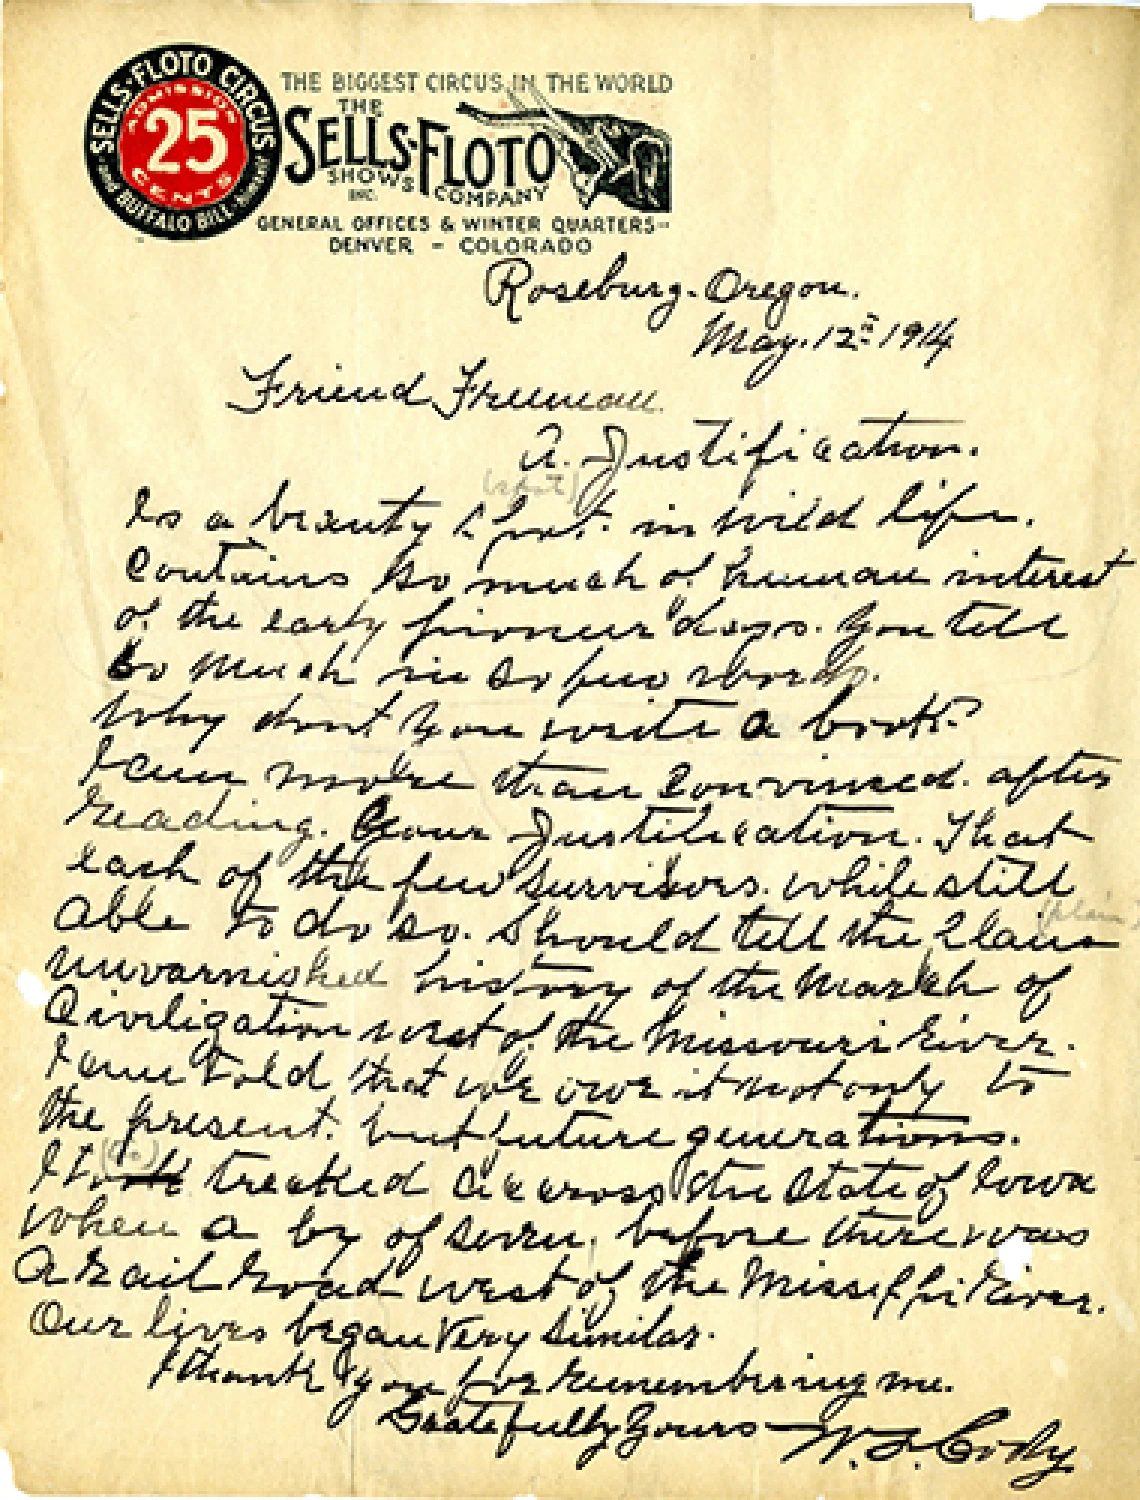 SELLS-FLOTO CIRCUS
ADMISSION
25
CENTS
BUFFALO BILL
THE BIGGEST CIRCUS IN THE WORLD
THE
SELLS-FLOTO
SHOWS COMPANY
INC.
GENERAL OFFICES & WINTER QUARTERS-
DENVER - COLORADO
Roseburg. Oregon.
May. 12= 1914
Friend Freeman.
A. Justification.
(spot)
Is a beauty spot. in wild life.
Contains so much of human interest
of the early pioneer days. You tell
so much in so few words.
Why dont you write a book?
I am more than convinced. after
reading. Your Justification. That
each of the few survivors. while still
able to do so. Should tell the plain
(plain)
unvarnished history of the March of
Civilization west of the Missouri River.
I am told that we owe it not only to
the present. but future generations.
I treaked across the State of Iowa
when a by of seven. before there was
A Rail Road west of the Missippi River.
Our lives began Very Similar.
I thank you for remembering me.
Gratefully Yours - W. F. Cody